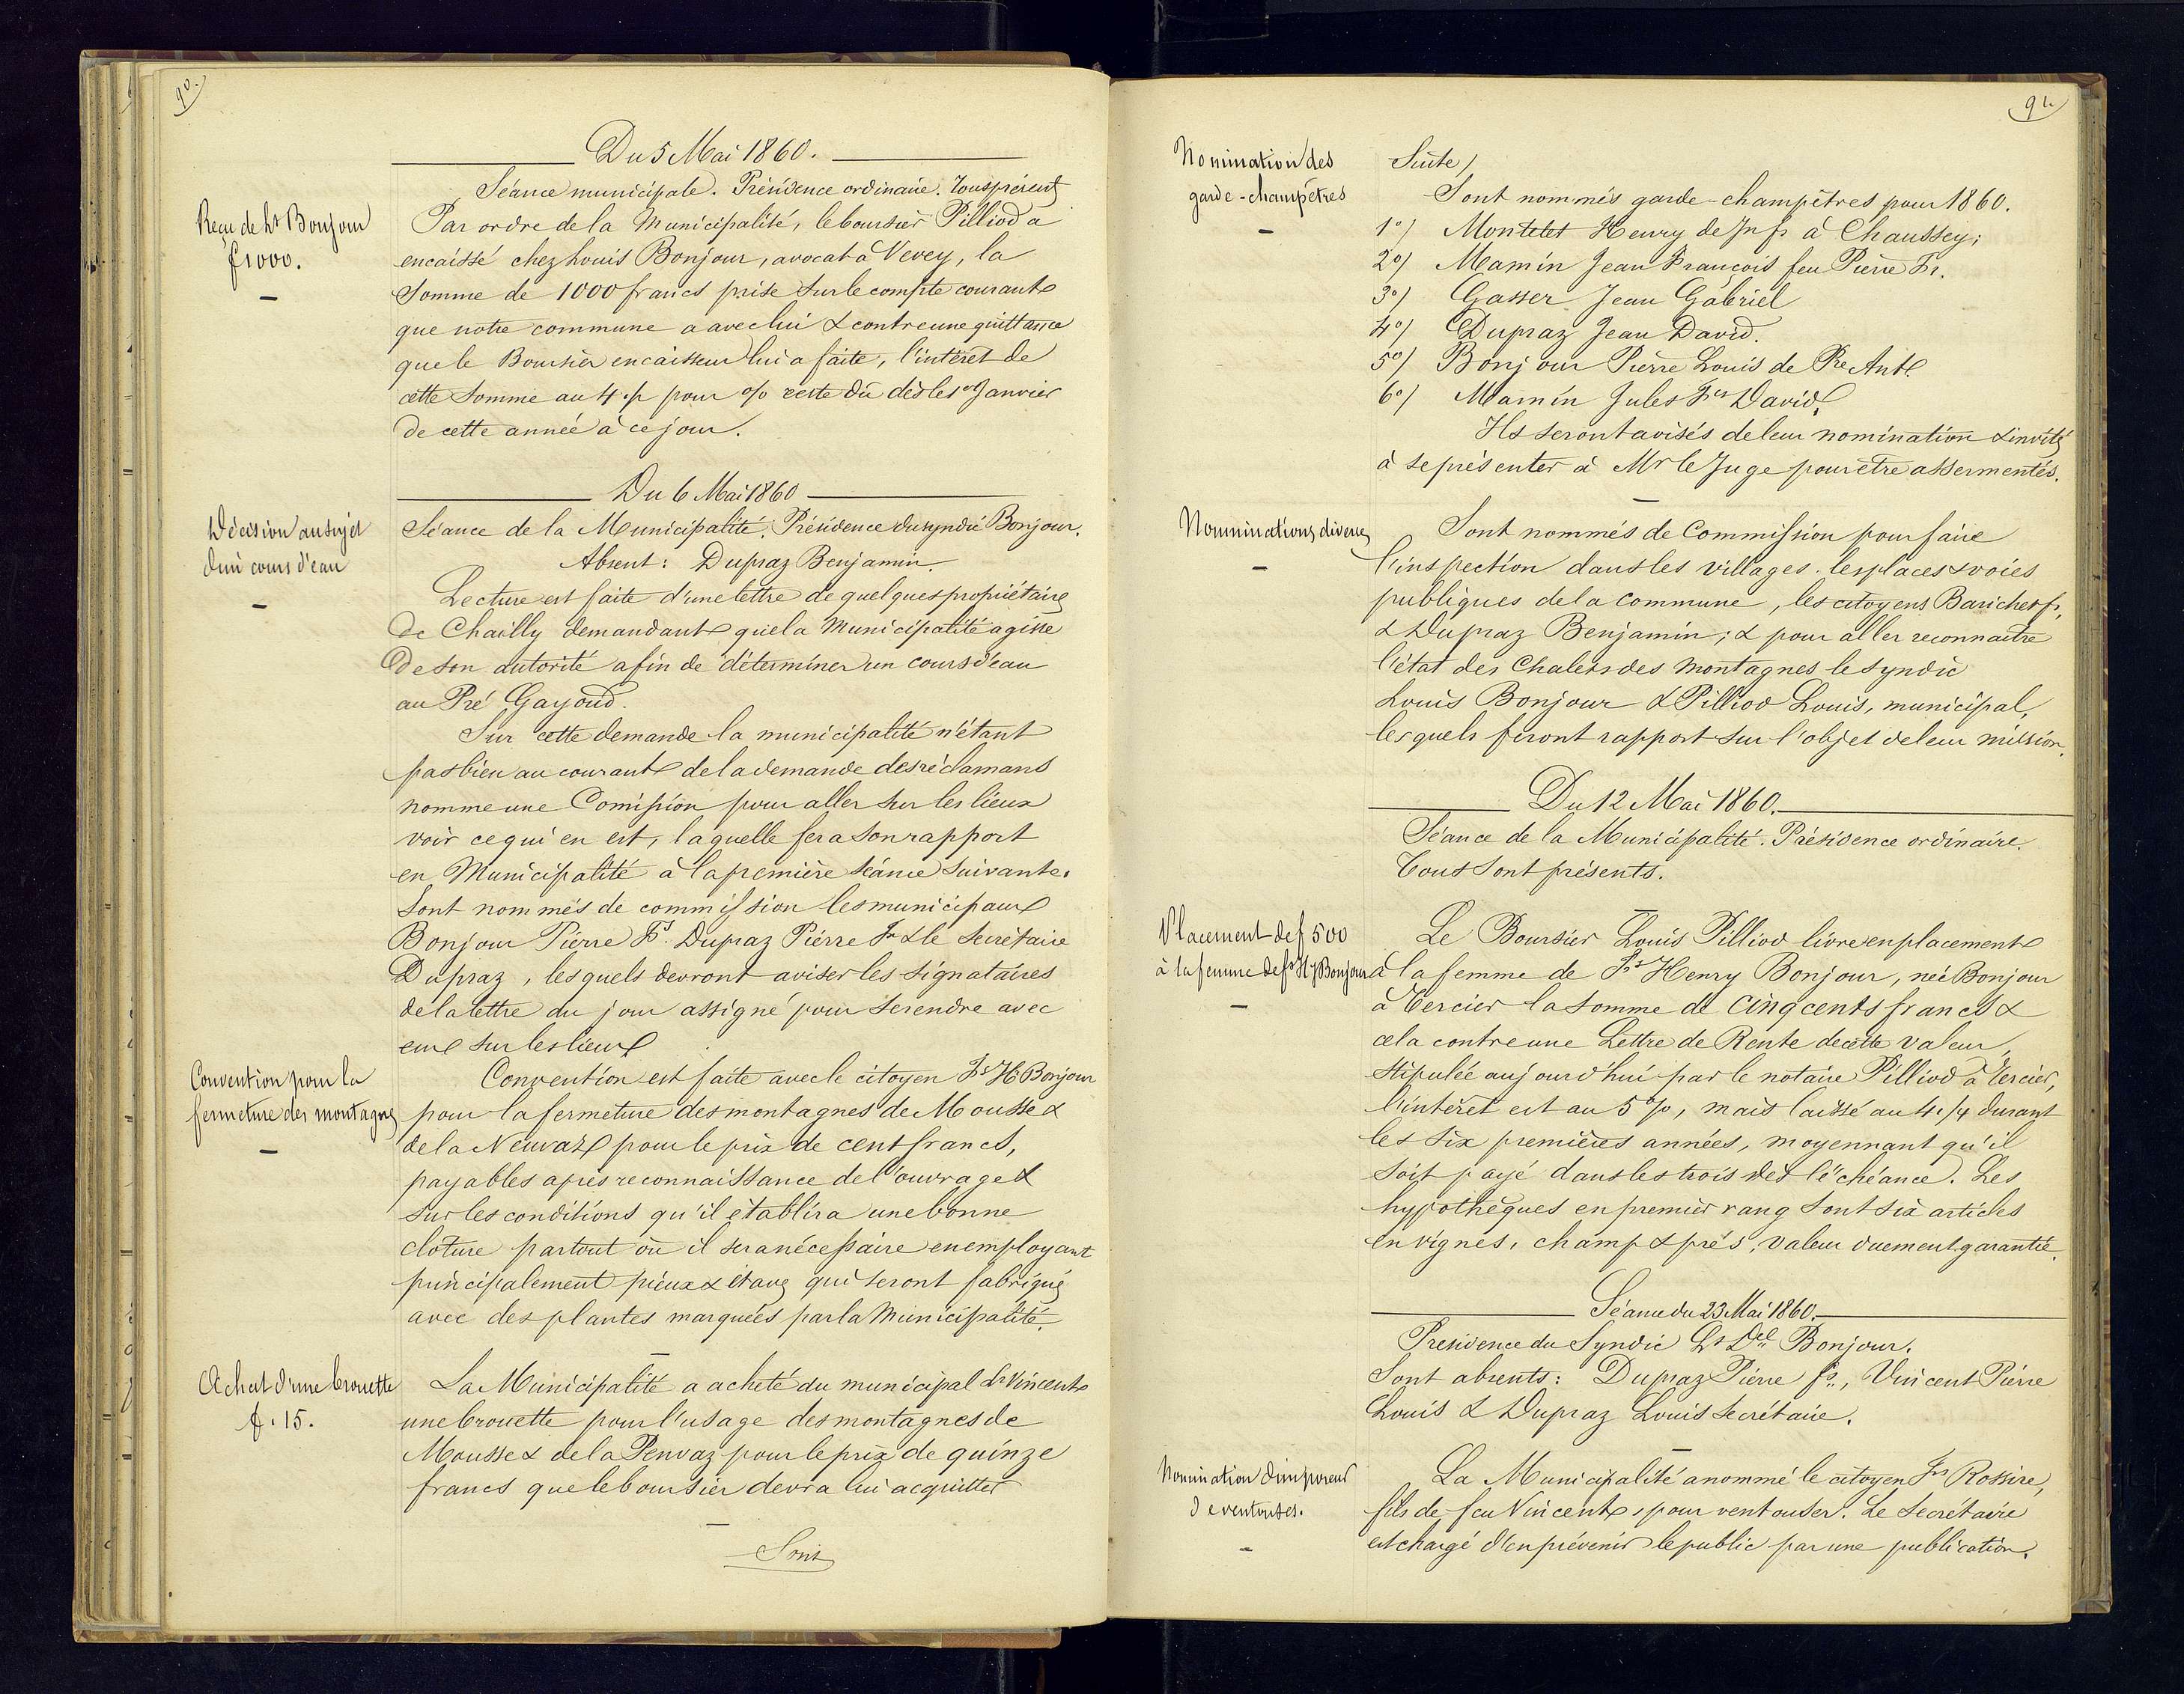 90.
Du 5 Mai 1860.
Séance municipale. Présidence ordinaire. Tous présents
Reçu de Ls Bonjour
f 1000.
Par ordre de la Municipalité, le boursier Pilliod a
encaissé chez Louis Bonjour, avocat à Vevey, la
somme de 1000 francs prise sur le compte courant
que notre commune a avec lui & contre une quittance
que le Boursier encaisseur lui a faite, l'intérêt de
cette somme au 4 p pour % reste dû dès le 1er Janvier
de cette année à ce jour.
Du 6 Mai 1860
Décision au sujet
d'un cours d'eau
Séance de la Municipalité. Présidence du syndic Bonjour.
Absent : Dupraz Benjamin.
Lecture est faite d'une lettre de quelques propriétaires
de Chailly demandant que la Municipalité agisse
de son autorité afin de déterminer un cours d'eau
au Pré Gayoud.
Sur cette demande la municipalité n'étant
pas bien au courant de la demande des réclamans
nomme une Comission pour aller sur les lieux
voir ce qui en est, laquelle fera son rapport
en Municipalité à la première séance suivante.
Sont nommés de commission les municipaux
Bonjour Pierre Fs. Dupraz Pierre Fs & le secrétaire
Dupraz, lesquels devront aviser les signataires
de la lettre du jour assigné pour se rendre avec
eux sur les lieux
Convention pour la
fermeture des montagnes
Convention est faite avec le citoyen Fs H Bonjour
pour la fermeture des montagnes de Mousse &
de la Neuvaz pour le prix de cent francs,
payables après reconnaissance de l'ouvrage &
sur les conditions qu'il établira une bonne
cloture partout où il sera nécessaire en employant
principalement pieux & étaux qui seront fabriqués
avec des plantes marquées par la Municipalité.
Achat d'une brouette
f. 15.
La Municipalité a acheté du municipal Ls Vincent
une brouette pour l'usage des montagnes de
Mousse & de la Penvaz pour le prix de quinze
francs que le boursier devra lui acquitter
Sont
91.
Nomination des
garde-champêtres
Suite /
Sont nommés garde-champêtres pour 1860.
1°/ Montetet Henry de Jn fs à Chaussey ;
2°/ Mamin Jean François feu Pierre Fs.
3°/ Gasser Jean Gabriel
4°/ Dupraz Jean David.
5°/ Bonjour Pierre Louis de Pre Ante
6°/ Mamin Jules Fs David.
Ils seront avisés de leur nomination & invités
à se présenter à Mr le Juge pour être assermentés.
Nominations diverses
Sont nommés de Commission pour faire
l'inspection dans les villages. les places & voies
publiques de la commune, les citoyens Barichet fs,
& Dupraz Benjamin ; & pour aller reconnaitre
l'état des Chalets des montagnes le syndic
Louis Bonjour & Pilliod Louis, municipal,
lesquels feront rapport sur l'objet de leur mission.
Du 12 Mai 1860.
Séance de la Municipalité. Présidence ordinaire.
Tous sont présents.
Placement de f 500
à la femme de Fs Hy Bonjour
Le Boursier Louis Pilliod livre en placement
à la femme de Fs Henry Bonjour, née Bonjour
à Tercier la somme de cinq cents francs &
cela contre une Lettre de Rente de cette valeur,
stipulée aujourd'hui par le notaire Pilliod à Tercier,
l'intérêt est au 5 %, mais laissé au 4 1/4 durant
les six premières années, moyennant qu'il
soit payé dans les trois dès l'échéance. Les
hypothèques en premier rang sont six articles
en vignes, champ & prés, valeur duement garantie.
Séance du 23 Mai 1860.
Presidence du Syndic Ls Del Bonjour.
Sont absents : Dupraz Pierre fs., Vincent Pierre
Louis & Dupraz Louis secrétaire.
Nomination d'un poseur
de ventouses.
La Municipalité a nommé le citoyen Fs Rossire,
fils de feu Vincent, pour ventouser. Le secretaire
est chargé d'en prévenir le public par une publication.